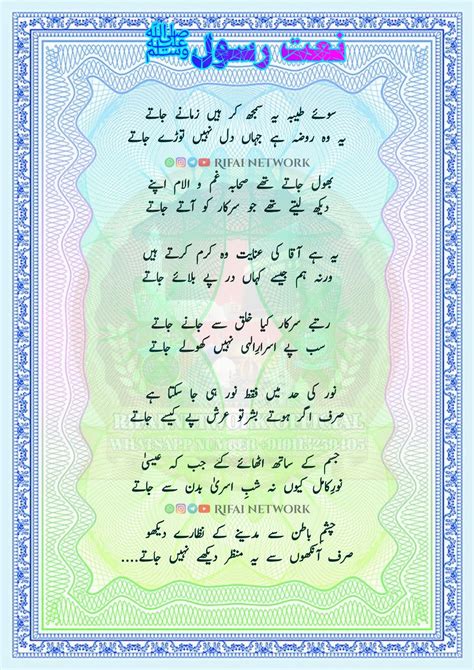 نعت رسول ﷺ
سوئے طیبہ یہ سمجھ کر ہیں زمانے جاتے
یہ وہ روضہ ہے جہاں دل نہیں توڑے جاتے
RIFAI NETWORK
بھول جاتے تھے صحابہ غم و الام اپنے
دیکھ لیتے تھے جو سرکار کو آتے جاتے
یہ ہے آقا کی عنایت وہ کرم کرتے ہیں
ورنہ ہم جیسے کہاں در پے بلائے جاتے
رتبے سرکار کیا خلق سے جانے جاتے
سب پے اسرارالہی نہیں کھولے جاتے
نور کی حد میں فقط نور ہی جا سکتا ہے
صرف اگر ہوتے بشرتو عرش پے کیسے جاتے
جسم کے ساتھ اٹھائے گئے جب کہ عیسیٰ
نورِکامل کیوں نہ شبِ اسریٰ بدن سے جاتے
RIFAI NETWORK
چشمِ باطن سے مدینے کے نظارے دیکھو
صرف آنکھوں سے یہ منظر دیکھے نہیں جاتے....